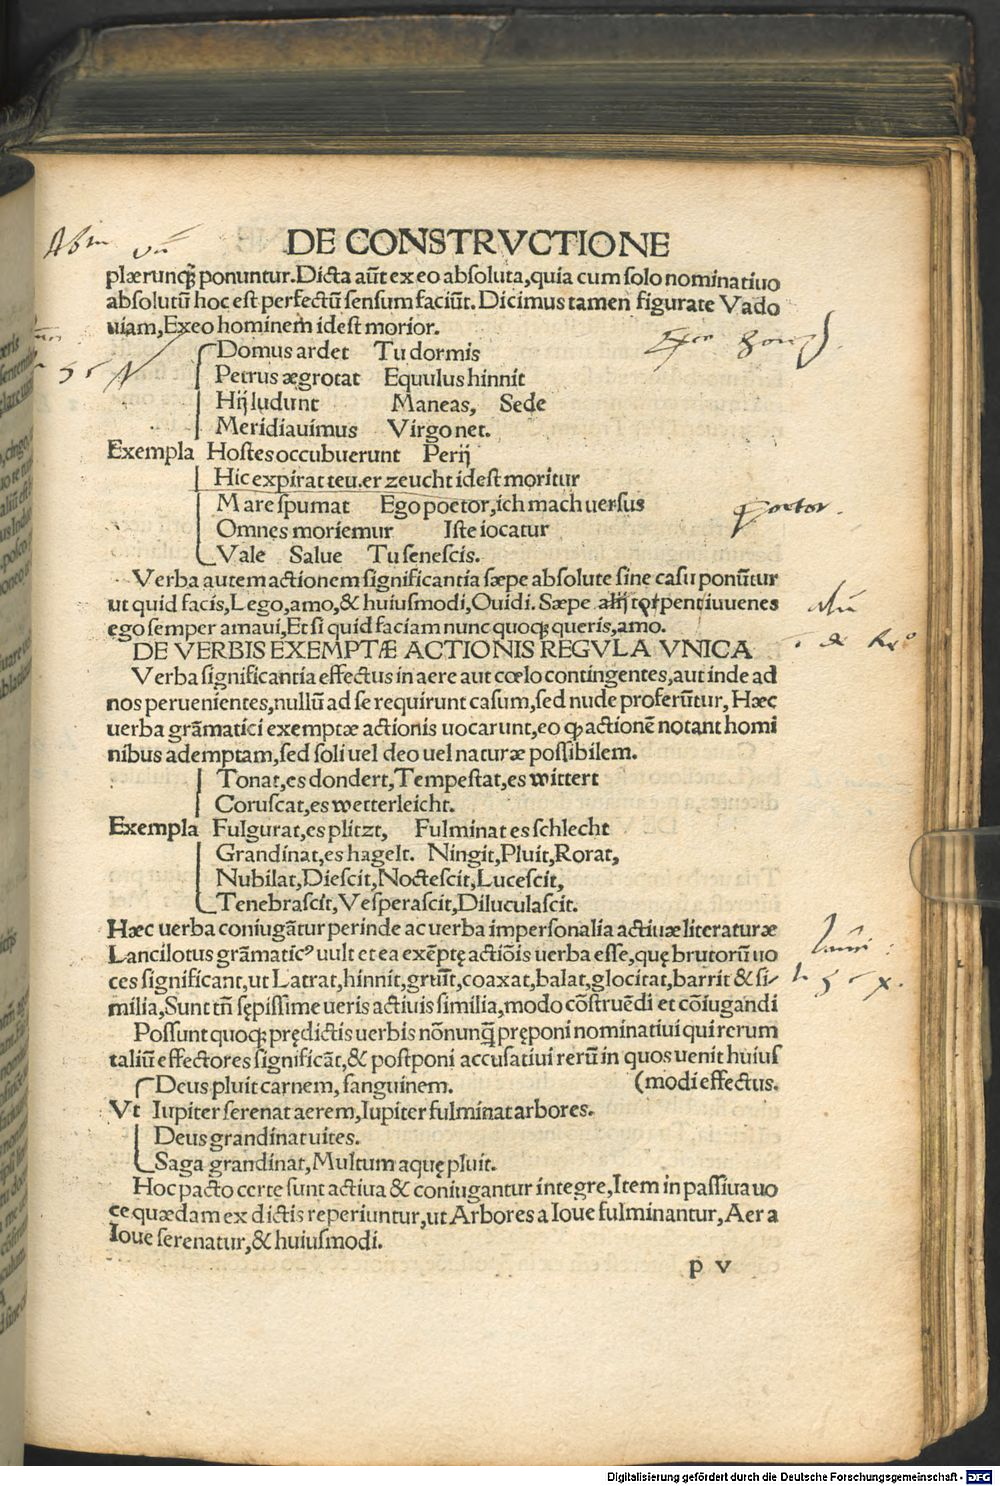 DE CONSTRVCTIONE
plærunq̃ ponuntur. Dicta aũt ex eo absoluta, quia cum solo nominatiuo
absolutũ hoc est perfectũ sensum faciũt. Dicimus tamen figurate Vado
uiam, Exeo hominem id est morior.
Domus ardet Tu dormis
Petrus ægrotat Equulus hinnit
Hij ludunt Maneas, Sede
Meridiauimus Virgo net.
Exempla Hostes occubuerunt Perij
Hic expirat teu. er zeucht id est moritur
Mare spumat Ego poetor, ich mach uersus
Omnes moriemur Iste iocatur
Vale Salue Tu senescis.
Verba autem actionem significantia sæpe absolute sine casu ponũtur
ut quid facis, Lego, amo, & huiusmodi, Ouidi. Sæpe alij torpent iuuenes
ego semper amaui, Et si quid faciam nunc quoq; queris, amo.
DE VERBIS EXEMPTÆ ACTIONIS REGVLA VNICA
Verba significantia effectus in aere aut cœlo contingentes, aut inde ad
nos peruenientes, nullũ ad se requirunt casum, sed nude proferũtur, Hæc
uerba grãmatici exemptæ actionis uocarunt, eo ꝙ actionẽ notant homi
nibus ademptam, sed soli uel deo uel naturæ possibilem.
Tonat, es dondert, Tempestat, es wittert
Coruscat, es wetterleicht.
Exempla Fulgurat, es plitzt, Fulminat es schlecht
Grandinat, es hagelt. Ningit, Pluit, Rorat,
Nubilat, Diescit, Noctescit, Lucescit,
Tenebrascit, Vesperascit, Diluculascit.
Hæc uerba coniugãtur perinde ac uerba impersonalia actiuæ literaturæ
Lancilotus grãmaticꝰ uult et ea exẽptę actiõis uerba esse, quę brutorũ uo
ces significant, ut Latrat, hinnit, grũit, coaxat, balat, glocitat, barrit & si-
milia, Sunt tñ sępissime ueris actiuis similia, modo cõstruẽdi et cõiugandi
Possunt quoq; prędictis uerbis nõnunq̃ pręponi nominatiui qui rerum
taliũ effectores significãt, & postponi accusatiui rerũ in quos uenit huius
Deus pluit carnem, sanguinem. (modi effectus.
Vt Iupiter serenat aerem, Iupiter fulminat arbores.
Deus grandinat uites.
Saga grandinat, Multum aquę pluit.
Hoc pacto certe sunt actiua & coniugantur integre, Item in passiua uo
ce quædam ex dictis reperiuntur, ut Arbores a Ioue fulminantur, Aer a
Ioue serenatur, & huiusmodi.
p v
Poetor.
Digitalisierung gefördert durch die Deutsche Forschungsgemeinschaft - DFG